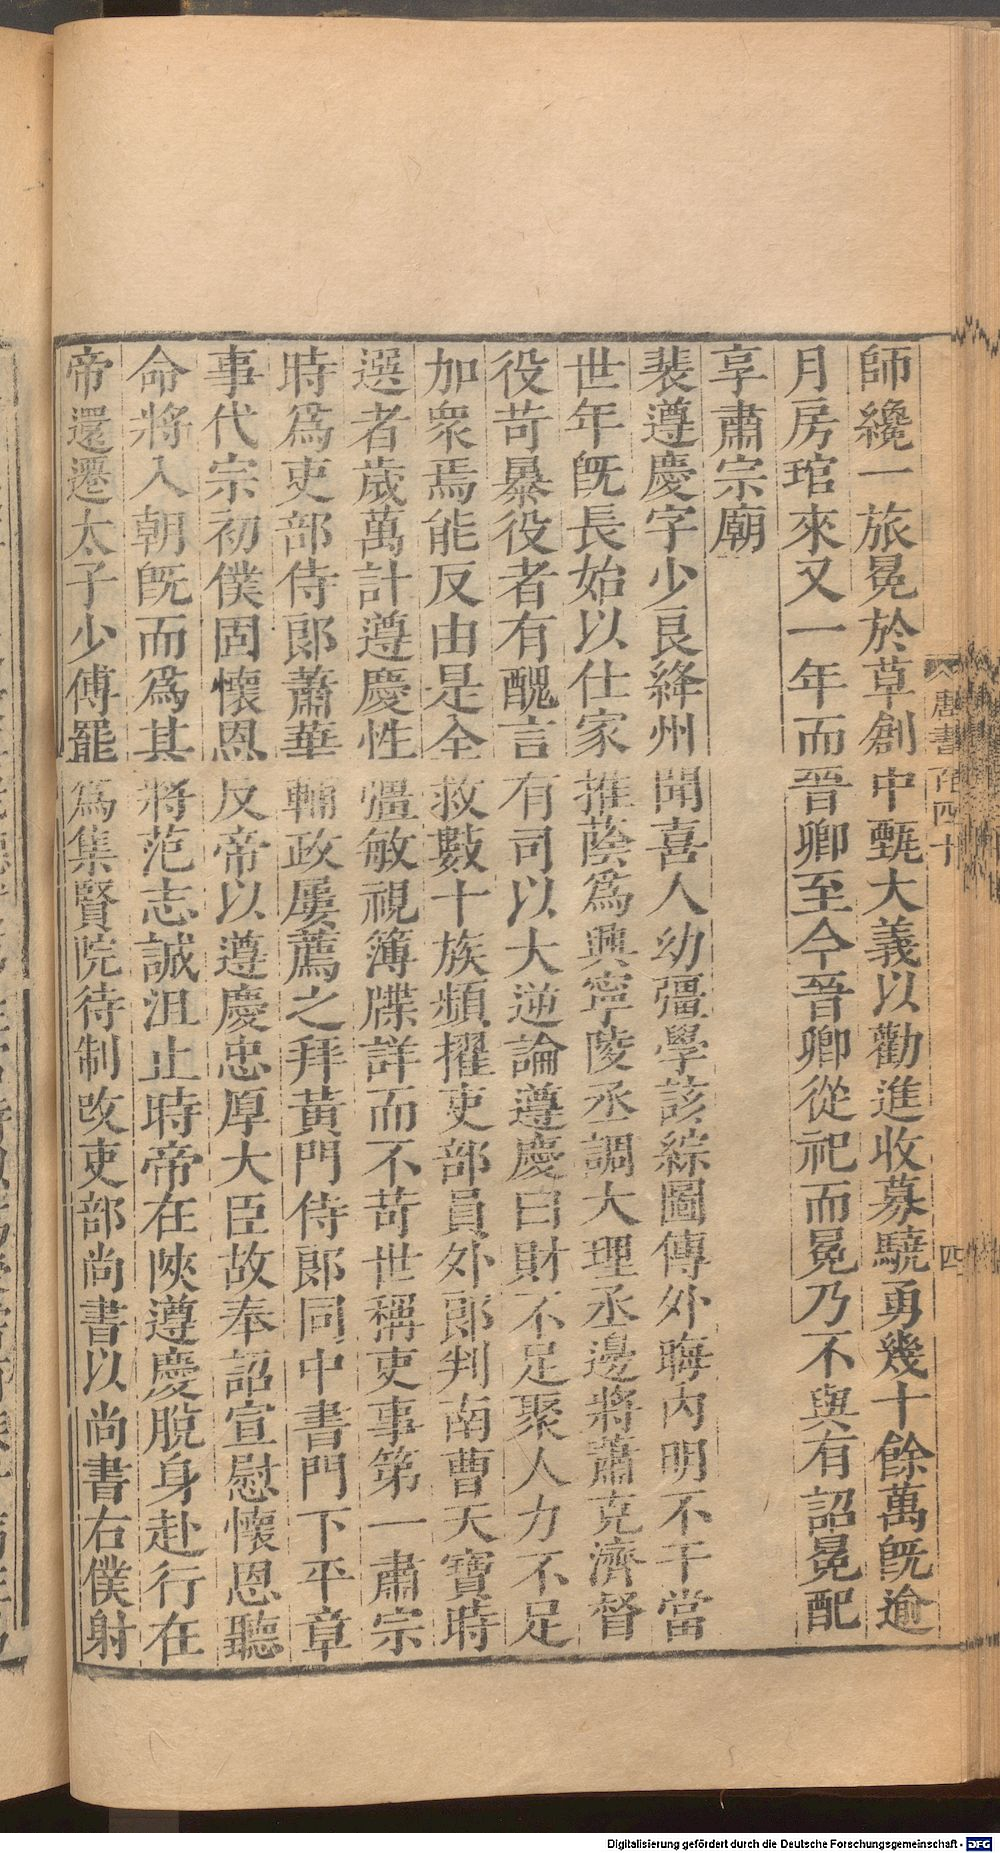 師纔一旅冕於草創中甄大義以勸進收募驍勇幾十餘萬旣逾
月房琯來又一年而晉卿至今晉卿從祀而冕乃不與有詔冕配
享肅宗廟
裴遵慶字少良絳州聞喜人幼彊學該綜圖傳外晦內明不干當
世年旣長始以仕家推蔭爲興寧陵丞調大理丞邊將蕭克濟督
役苛暴役者有醜言有司以大逆論遵慶曰財不足聚人力不足
加衆焉能反由是全救數十族頻擢吏部員外郞判南曹天寶時
選者歲萬計遵慶性彊敏視簿牒詳而不苛世稱吏事第一肅宗
時爲吏部侍郞蕭華輔政屢薦之拜黃門侍郞同中書門下平章
事代宗初僕固懷恩反帝以遵慶忠厚大臣故奉詔宣慰懷恩聽
命將入朝旣而爲其將范志誠沮止時帝在陝遵慶脫身赴行在
帝還遷太子少傅罷爲集賢院待制改吏部尚書以尚書右僕射
唐書百四十
四
Digitalisierung gefördert durch die Deutsche Forschungsgemeinschaft - DFG